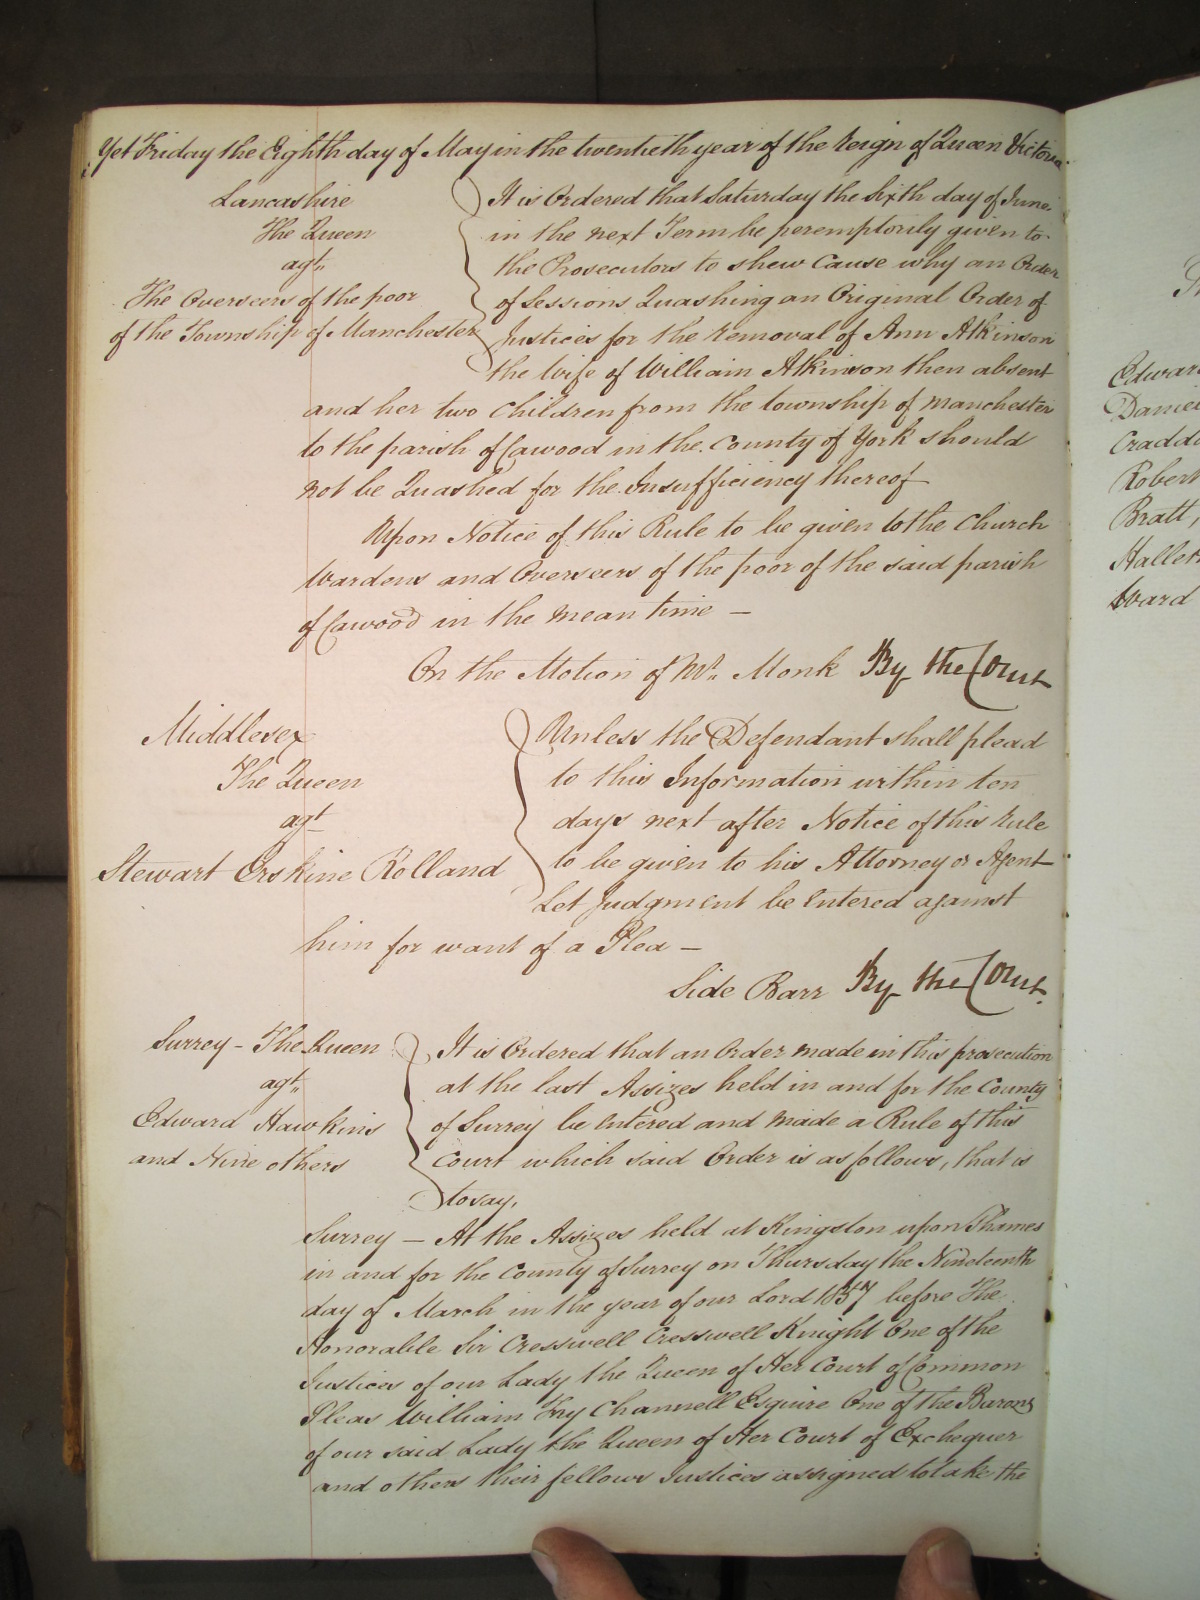 Yet Friday the Eighth day of May in the twentieth year of the Reign of Queen Victoria
Lancashire
The Queen
agt.
The Overseers of the poor
of the Township of Manchester
It is Ordered that Saturday the Sixth day of June
in the next Term be peremptorily given to
the Prosecutors to shew Cause why an Order
of Sessions Quashing an Original Order of
Justices for the removal of Ann Atkinson
the Wife of William Atkinson then absent
and her two Children from the township of Manchester
to the parish of Cawood in the County of York should
not be Quashed for the Insufficiency thereof
Upon Notice of this Rule to be given to the Church
Wardens and Overseers of the poor of the said parish
of Cawood in the mean time —
On the Motion of Mr. Monk By the Court
Middlesex
The Queen
agt
Stewart Erskine Rolland
Unless the Defendant shall plead
to this Information within ten
days next after Notice of this rule
to be given to his Attorney or Agent
Let Judgment be entered against
him for want of a Plea —
Side Barr By the Court.
Surrey – The Queen
agt.
Edward Hawkins
and Nine others
It is Ordered that an Order made in this prosecution
at the last Assizes held in and for the County
of Surrey be entered and made a Rule of this
Court which said Order is as follows, that is
to say,
Surrey — At the Assizes held at Kingston upon Thames
in and for the County of Surrey on Thursday the Nineteenth
day of March in the year of our Lord 1857 before The
Honorable Sir Cresswell Cresswell Knight One of the
Justices of our Lady the Queen of Her Court of Common
Pleas William Fry Channell Esquire One of the Barons
of our said Lady the Queen of Her Court of Exchequer
and others their fellows Justices assigned to take the
Edward
Daniel
Robert
Bratt,
Hallett
Ward